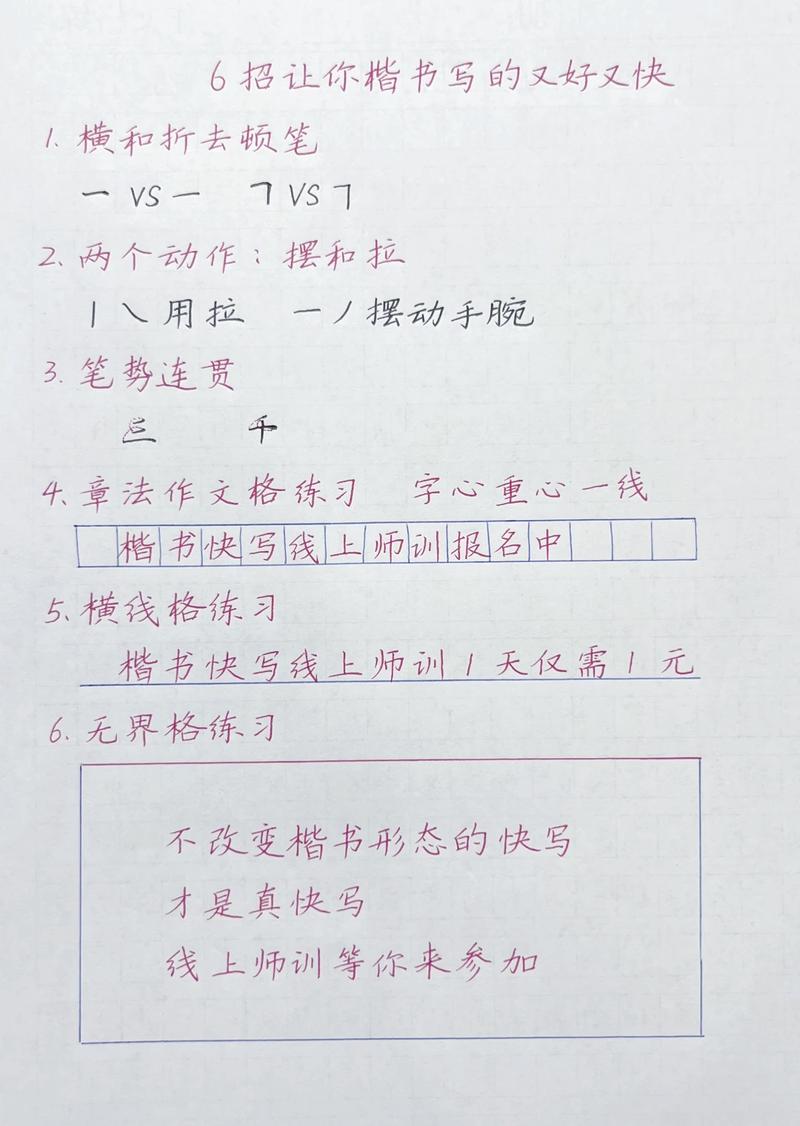 6招让你楷书写的又好又快
1. 横和折去顿笔
一 VS 一 ㇕ VS ㇕
2. 两个动作：摆和拉
丨㇏用拉 一丿摆动手腕
3. 笔势连贯
三 千
4. 章法作文格练习 字心重心一线
楷书快写线上师训报名中
5. 横线格练习
楷书快写线上师训1天仅需1元
6. 无界格练习
不改变楷书形态的快写
才是真快写
线上师训等你来参加